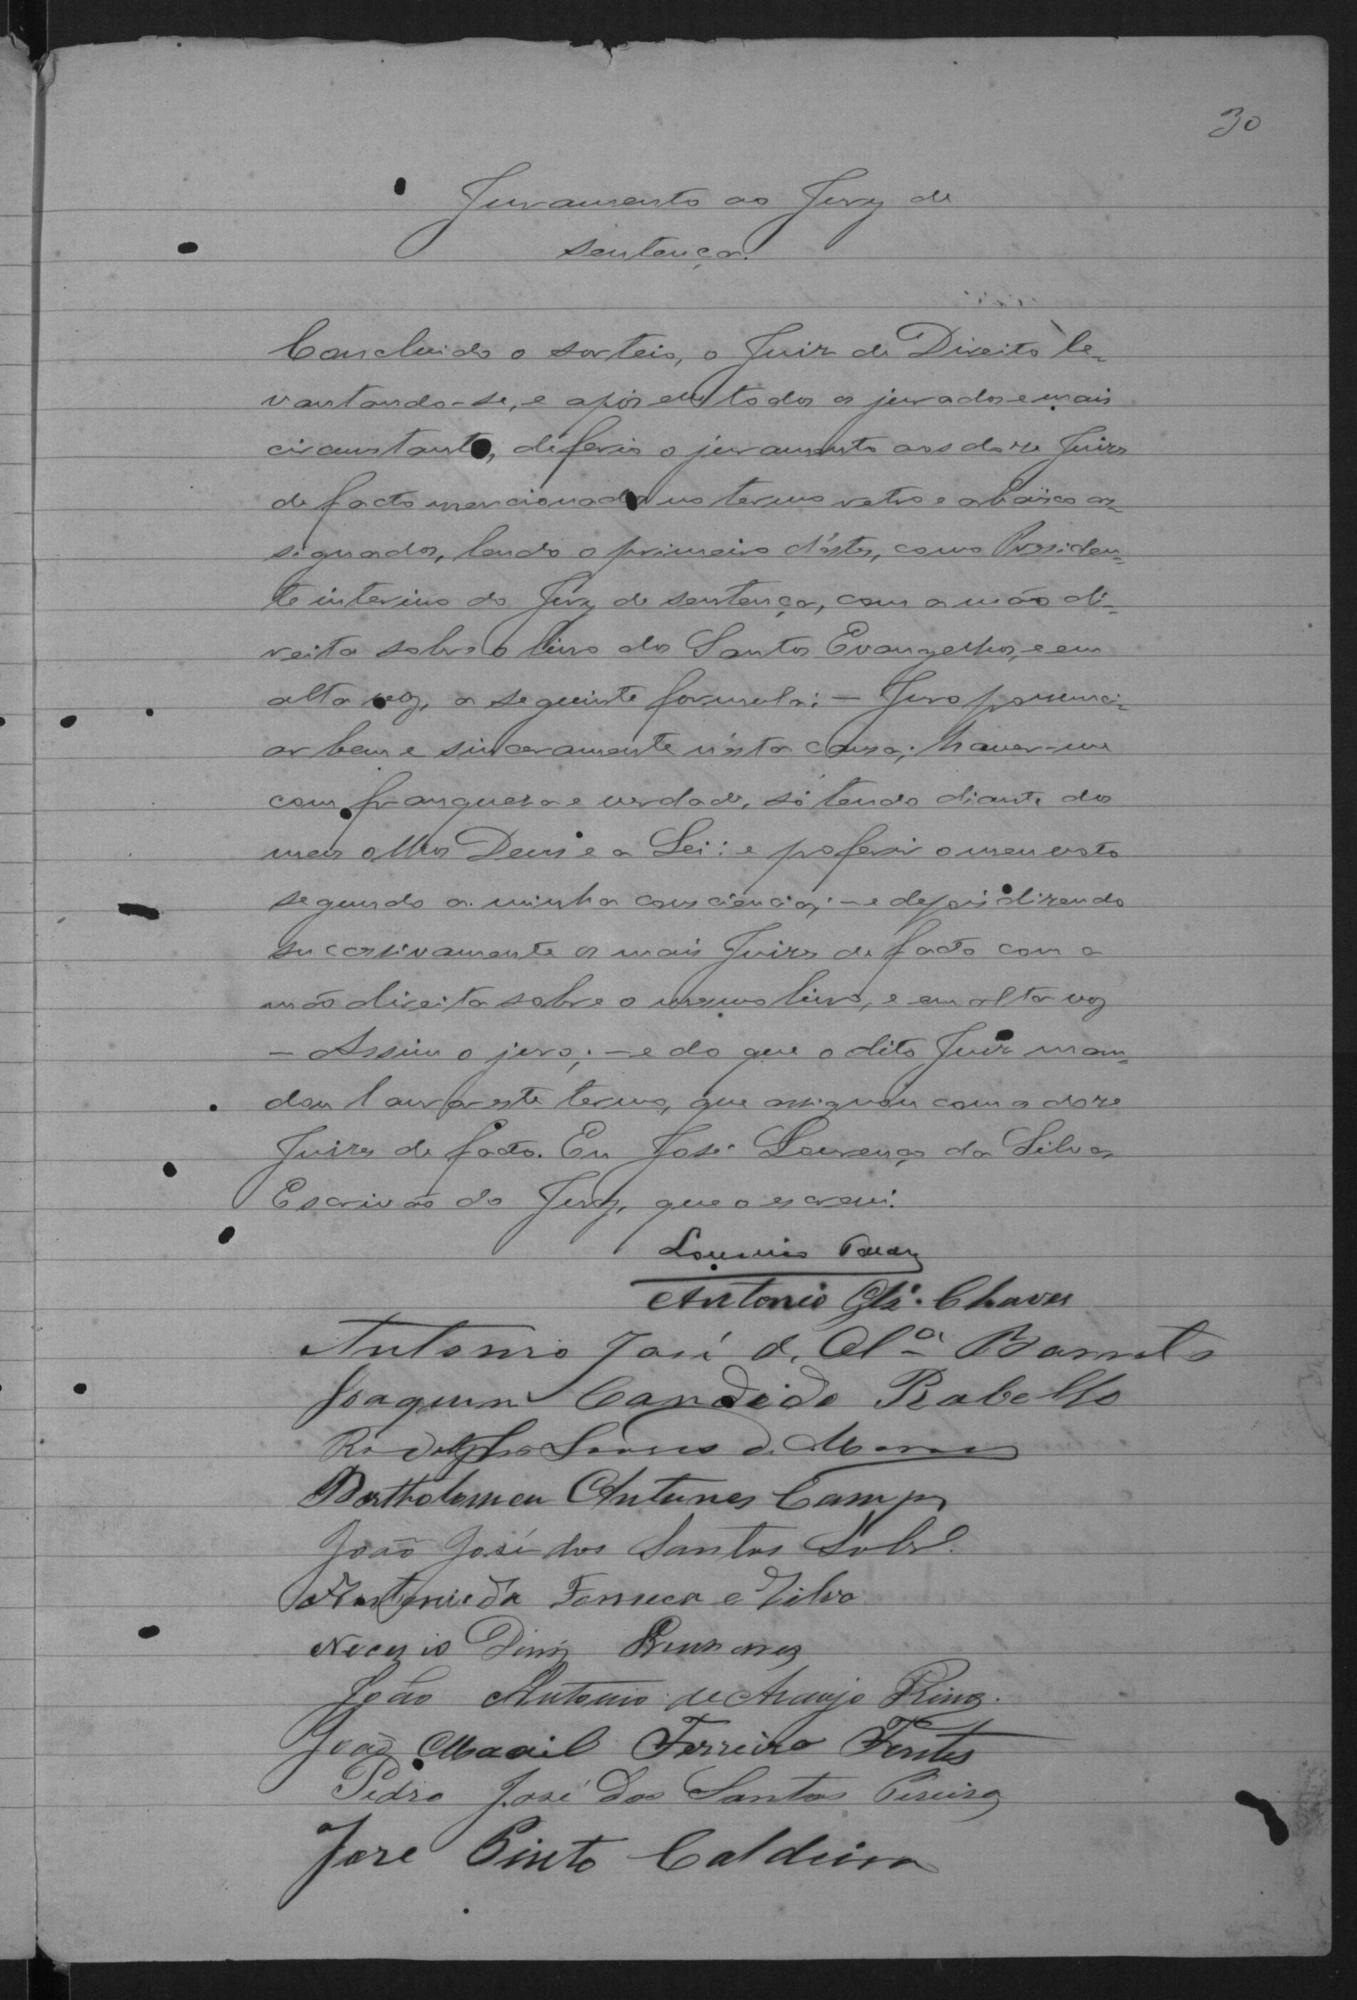 30
Juramento ao Jury de
sentença.
Concluido o sorteio, o Juiz de Direito le-
vantando-se, e apóz elle todos os jurados e mais
circumstantes, deferio o juramento aos doze Juizes
de facto mencionados no termo retro e abaixo as-
signados, lendo o primeiro d'éstes, como Presiden-
te interino do Jury de sentença, com a mão di-
reita sobre o livro dos Santos Evangelhos, e em
alta voz, a seguinte formula: — Juro pronunci-
ar bem e sinceramente n'ésta causa; haver-me
com franqueza e verdade, só tendo diante dos
meus olhos Deus e a Lei: e proferir o meu voto
segundo a minha consciencia; — e depois dizendo
successivamente os mais Juizes de facto com a
mão direita sobre o mesmo livro, e em alta voz
— Assim o juro; — e do que o dito Juiz man-
dou lavrar este termo, que assignou com os doze
Juizes de facto. Eu José Lourenço da Silva,
Escrivão do Jury, que o escrevi.
Antonio Chaves
Antonio José d. Olª Barreto
Joaquim Candido Rabello
Rodolpho Soares d. Moraes
Bartholomeu Antunes Campos
João José dos Santos Sobrº
Antonio da Fonseca e Silva
Diniz
João Antonio de Araujo
João Ferreira Fontes
Pedro José dos Santos Pereira
Jose Pinto Caldeira